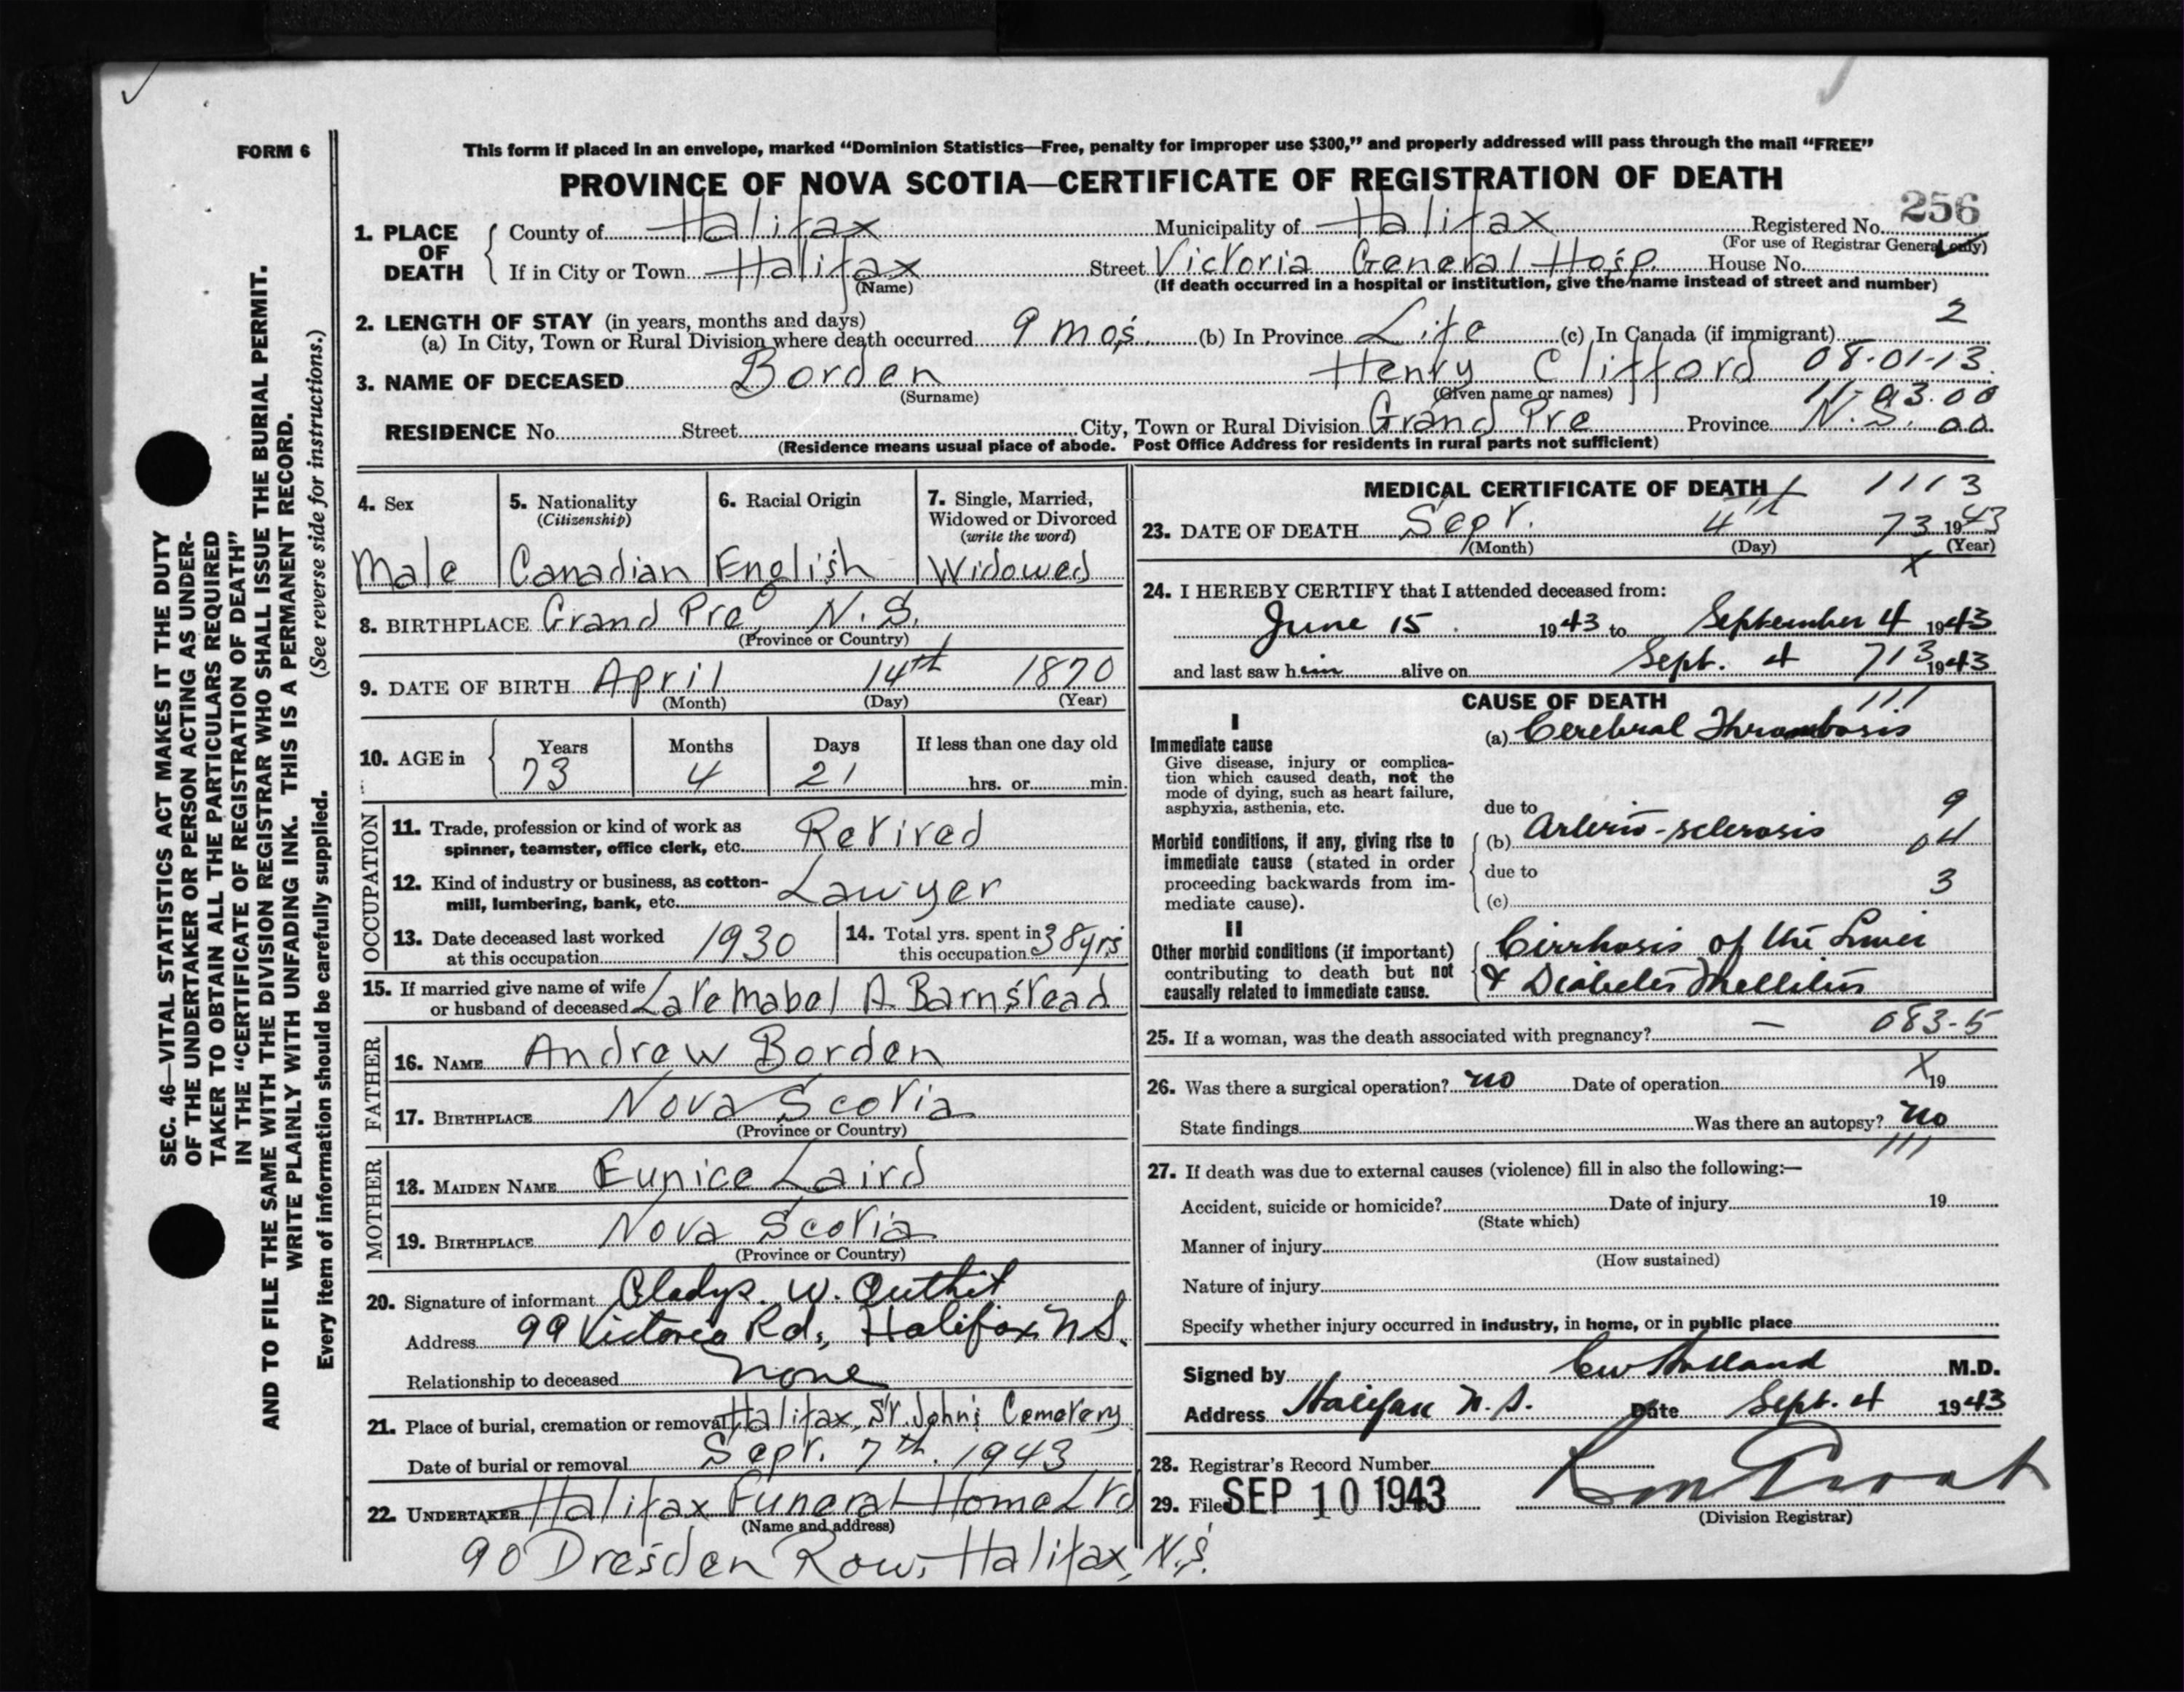 FORM 6
This form if placed in an envelope, marked “Dominion Statistics—Free, penalty for improper use $300,” and properly addressed will pass through the mail “FREE”
PROVINCE OF NOVA SCOTIA—CERTIFICATE OF REGISTRATION OF DEATH
256
1. PLACE OF DEATH
County of Halifax Municipality of Halifax Registered No.
(For use of Registrar General only)
If in City or Town Halifax Street Victoria General Hosp. House No.
(Name) (If death occurred in a hospital or institution, give the name instead of street and number)
2. LENGTH OF STAY (in years, months and days)
(a) In City, Town or Rural Division where death occurred 9 mos. (b) In Province Life (c) In Canada (if immigrant) 2
3. NAME OF DECEASED Borden Henry Clifford 08-01-13
(Surname) (Given name or names) 11-03.00
RESIDENCE No. Street City, Town or Rural Division Grand Pre Province N.S. 00
(Residence means usual place of abode. Post Office Address for residents in rural parts not sufficient)
4. Sex
Male
5. Nationality
(Citizenship)
Canadian
6. Racial Origin
English
7. Single, Married,
Widowed or Divorced
(write the word)
Widowed
8. BIRTHPLACE Grand Pre, N.S.
(Province or Country)
9. DATE OF BIRTH April 14th 1870
(Month) (Day) (Year)
10. AGE in
Years Months Days If less than one day old
73 4 21 hrs. or min.
OCCUPATION
11. Trade, profession or kind of work as
spinner, teamster, office clerk, etc. Retired
12. Kind of industry or business, as cotton-
mill, lumbering, bank, etc. Lawyer
13. Date deceased last worked
at this occupation 1930
14. Total yrs. spent in
this occupation 38 yrs
15. If married give name of wife
or husband of deceased Late Mabel A Barnstead
FATHER
16. NAME Andrew Borden
17. BIRTHPLACE Nova Scotia
(Province or Country)
MOTHER
18. MAIDEN NAME Eunice Laird
19. BIRTHPLACE Nova Scotia
(Province or Country)
20. Signature of informant Gladys. W. Outhit
Address 99 Victoria Rd, Halifax N S.
Relationship to deceased None
21. Place of burial, cremation or removal Halifax, St. John's Cemetery
Date of burial or removal Sept. 7th. 1943
22. UNDERTAKER Halifax Funeral Home Ltd
(Name and address)
90 Dresden Row, Halifax, N.S.
MEDICAL CERTIFICATE OF DEATH 1113
23. DATE OF DEATH Sept. 4th 73 1943
(Month) (Day) (Year)
X
24. I HEREBY CERTIFY that I attended deceased from:
June 15 1943 to September 4 1943
and last saw him alive on Sept. 4 713 1943
CAUSE OF DEATH 111
I
Immediate cause
Give disease, injury or complica-
tion which caused death, not the
mode of dying, such as heart failure,
asphyxia, asthenia, etc.
(a) Cerebral Thrombosis
due to 9
Morbid conditions, if any, giving rise to
immediate cause (stated in order
proceeding backwards from im-
mediate cause).
(b) Arterio-sclerosis 04
due to
(c) 3
II
Other morbid conditions (if important)
contributing to death but not
causally related to immediate cause.
Cirrhosis of the Liver
& Diabetes Mellitus
25. If a woman, was the death associated with pregnancy? — 083-5
26. Was there a surgical operation? no Date of operation X 19
State findings Was there an autopsy? no
111
27. If death was due to external causes (violence) fill in also the following:—
Accident, suicide or homicide? Date of injury 19
(State which)
Manner of injury
(How sustained)
Nature of injury
Specify whether injury occurred in industry, in home, or in public place
Signed by CW Holland M.D.
Address Halifax N.S. Date Sept. 4 1943
28. Registrar's Record Number
29. Filed SEP 10 1943
(Division Registrar)
SEC. 46—VITAL STATISTICS ACT MAKES IT THE DUTY
OF THE UNDERTAKER OR PERSON ACTING AS UNDER-
TAKER TO OBTAIN ALL THE PARTICULARS REQUIRED
IN THE “CERTIFICATE OF REGISTRATION OF DEATH”
AND TO FILE THE SAME WITH THE DIVISION REGISTRAR WHO SHALL ISSUE THE BURIAL PERMIT.
WRITE PLAINLY WITH UNFADING INK. THIS IS A PERMANENT RECORD.
Every item of information should be carefully supplied. (See reverse side for instructions.)